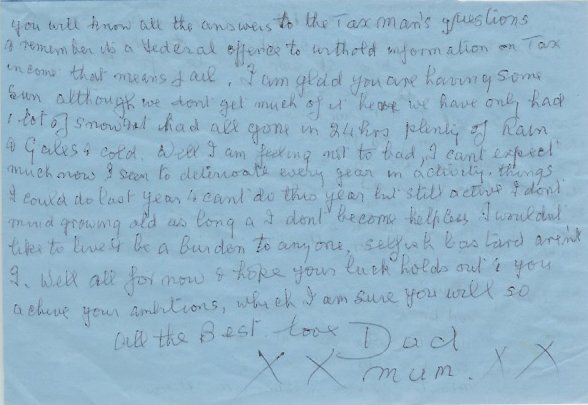 you will know all the answers to the Tax man's questions
& remember its a federal offence to withold information on Tax
income that means Jail. I am glad you are having some
sun although we dont get much of it here we have only had
1 lot of snow & it had all gone in 24 hrs plenty of rain
& Gales & cold. Well I am feeling not to bad, I cant expect
much now I seem to deteriorate every year in activity. things
I could do last year & cant do this year but still active I dont
mind growing old as long as I dont become helpless I wouldnt
like to live & be a burden to anyone, selfish bastard arent
I. Well all for now & hope your luck holds out & you
achive your ambitions, which I am sure you will so
all the Best. love Dad
X X mum. X X